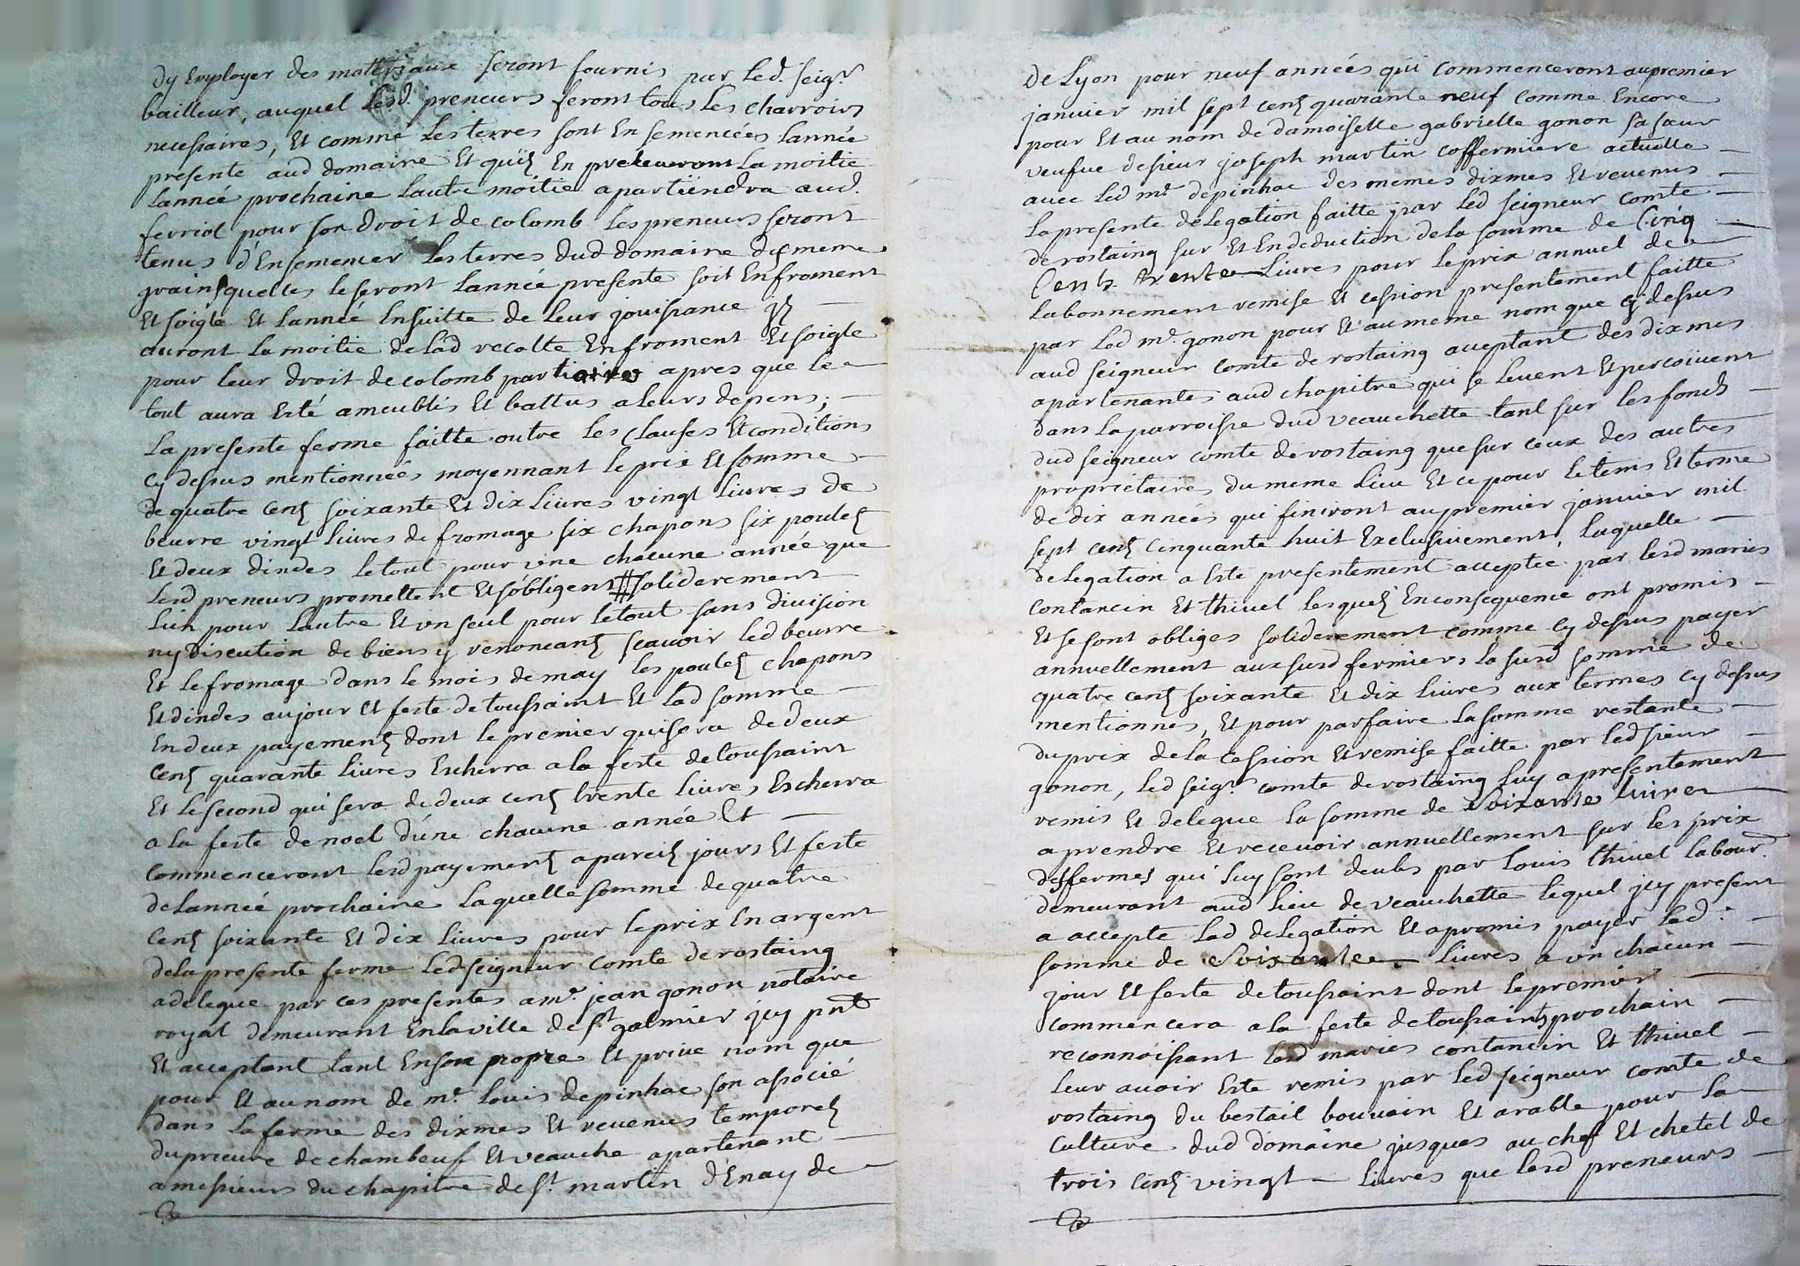 dy Employer des materiaux seront fournis par led. seigr
bailleur, auquel lesd. preneurs feront tous les charrois
necessaires, Et comme les terres sont En semencées lannée
presente aud domaine Et quils En preleveront la moitié
lannée prochaine lautre moitié apartiendra aud.
ferriol pour son droit de colomb les preneurs seront
tenus d'Ensemencer les terres dud domaine des meme
grains quelles le seront lannée presente soit En froment
Et soigle Et lannée Ensuitte de leur jouissance ils
auront la moitié de lad recolte En froment Et soigle
pour leur droit de colomb partiaire apres que le
tout aura Esté ameublis Et battus a leurs depens;
La presente ferme faitte outre les clauses Et conditions
cy dessus mentionnées moyennant le prix Et somme
de quatre cens soixante Et dix livres vingt livres de
beurre vingt livres de fromage six chapons six poules
Et deux dindes le tout pour une chacune année que
lesd preneurs promettent Et s'obligent # soliderement
lun pour lautre Et un seul pour le tout sans division
ny discution de biens y renoncans scavoir led beurre
Et le fromage dans le mois de may les poules chapons
Et dindes au jour Et feste de toussaint Et lad somme
En deux payemens dont le premier qui sera de deux
cens quarante livres Escherra a la feste de toussaint
Et le second qui sera de deux cens trente livres Escherra
a la feste de noel d'une chacune année Et
commenceront lesd payemens a pareils jours Et feste
de lannée prochaine laquelle somme de quatre
cens soixante Et dix livres pour le prix En argent
de la presente ferme led seigneur comte de rostaing
a delegué par ces presentes a mr. jean gonon notaire
royal demeurant En la ville de st galmier icy pnt
Et acceptant tant En son propre Et privé nom que
pour Et au nom de mr. louis depinhac son associé
dans la ferme des dixmes Et revenus temporels
du prieuré de chambeuf Et veauche apartenant
a messieurs du chapitre de st. martin d'Enay de
de Lyon pour neuf années qui commenceront au premier
janvier mil sept cens quarante neuf comme Encore
pour Et au nom de damoiselle gabrielle gonon sa sœur
veufve de sieur joseph martin coffermiere actuelle
avec led mr. depinhac des memes dixmes Et revenus
la presente delegation faitte par led seigneur comte
de rostaing sur Et En deduction de la somme de Cinq
Cents trente livres pour le prix annuel de
labonnement remise Et cession presentement faitte
par led mr. gonon pour Et au meme nom que cy dessus
aud seigneur comte de rostaing acceptant des dixmes
apartenantes aud chapitre qui se levent Et percoivent
dans la parroisse dud veauchette tant sur les fonds
dud seigneur comte de rostaing que sur ceux des autres
proprietaires du meme lieu Et ce pour le tems Et terme
de dix années qui finiront au premier janvier mil
sept cens cinquante huit Exclusivement, laquelle
delegation a Esté presentement acceptée par lesd mariés
contancin Et thivel lesquels En consequence ont promis
Et se sont obligés soliderement comme cy dessus payer
annuellement aux susd fermiers la susd somme de
quatre cens soixante Et dix livres aux termes cy dessus
mentionnés, Et pour parfaire la somme restante
du prix de la cession Et remise faitte par led sieur
gonon, led seigr. comte de rostaing luy a presentement
remis Et delegué la somme de Soixante livres
a prendre Et recevoir annuellement sur les prix
des fermes qui luy sont deubs par louis thivel labourr
demeurant aud lieu de veauchette lequel icy present
a accepté lad delegation Et a promis payer lad.
somme de Soixante livres a un chacun
jour Et feste de toussaint dont le premier
commencera a la feste de toussaint prochain
reconnoissant lesd mariés contancin Et thivel
leur avoir Esté remis par led seigneur comte de
rostaing du bestail bouvain Et arable pour la
culture dud domaine jusques au chef Et chetel de
trois cens vingt livres que lesd preneurs